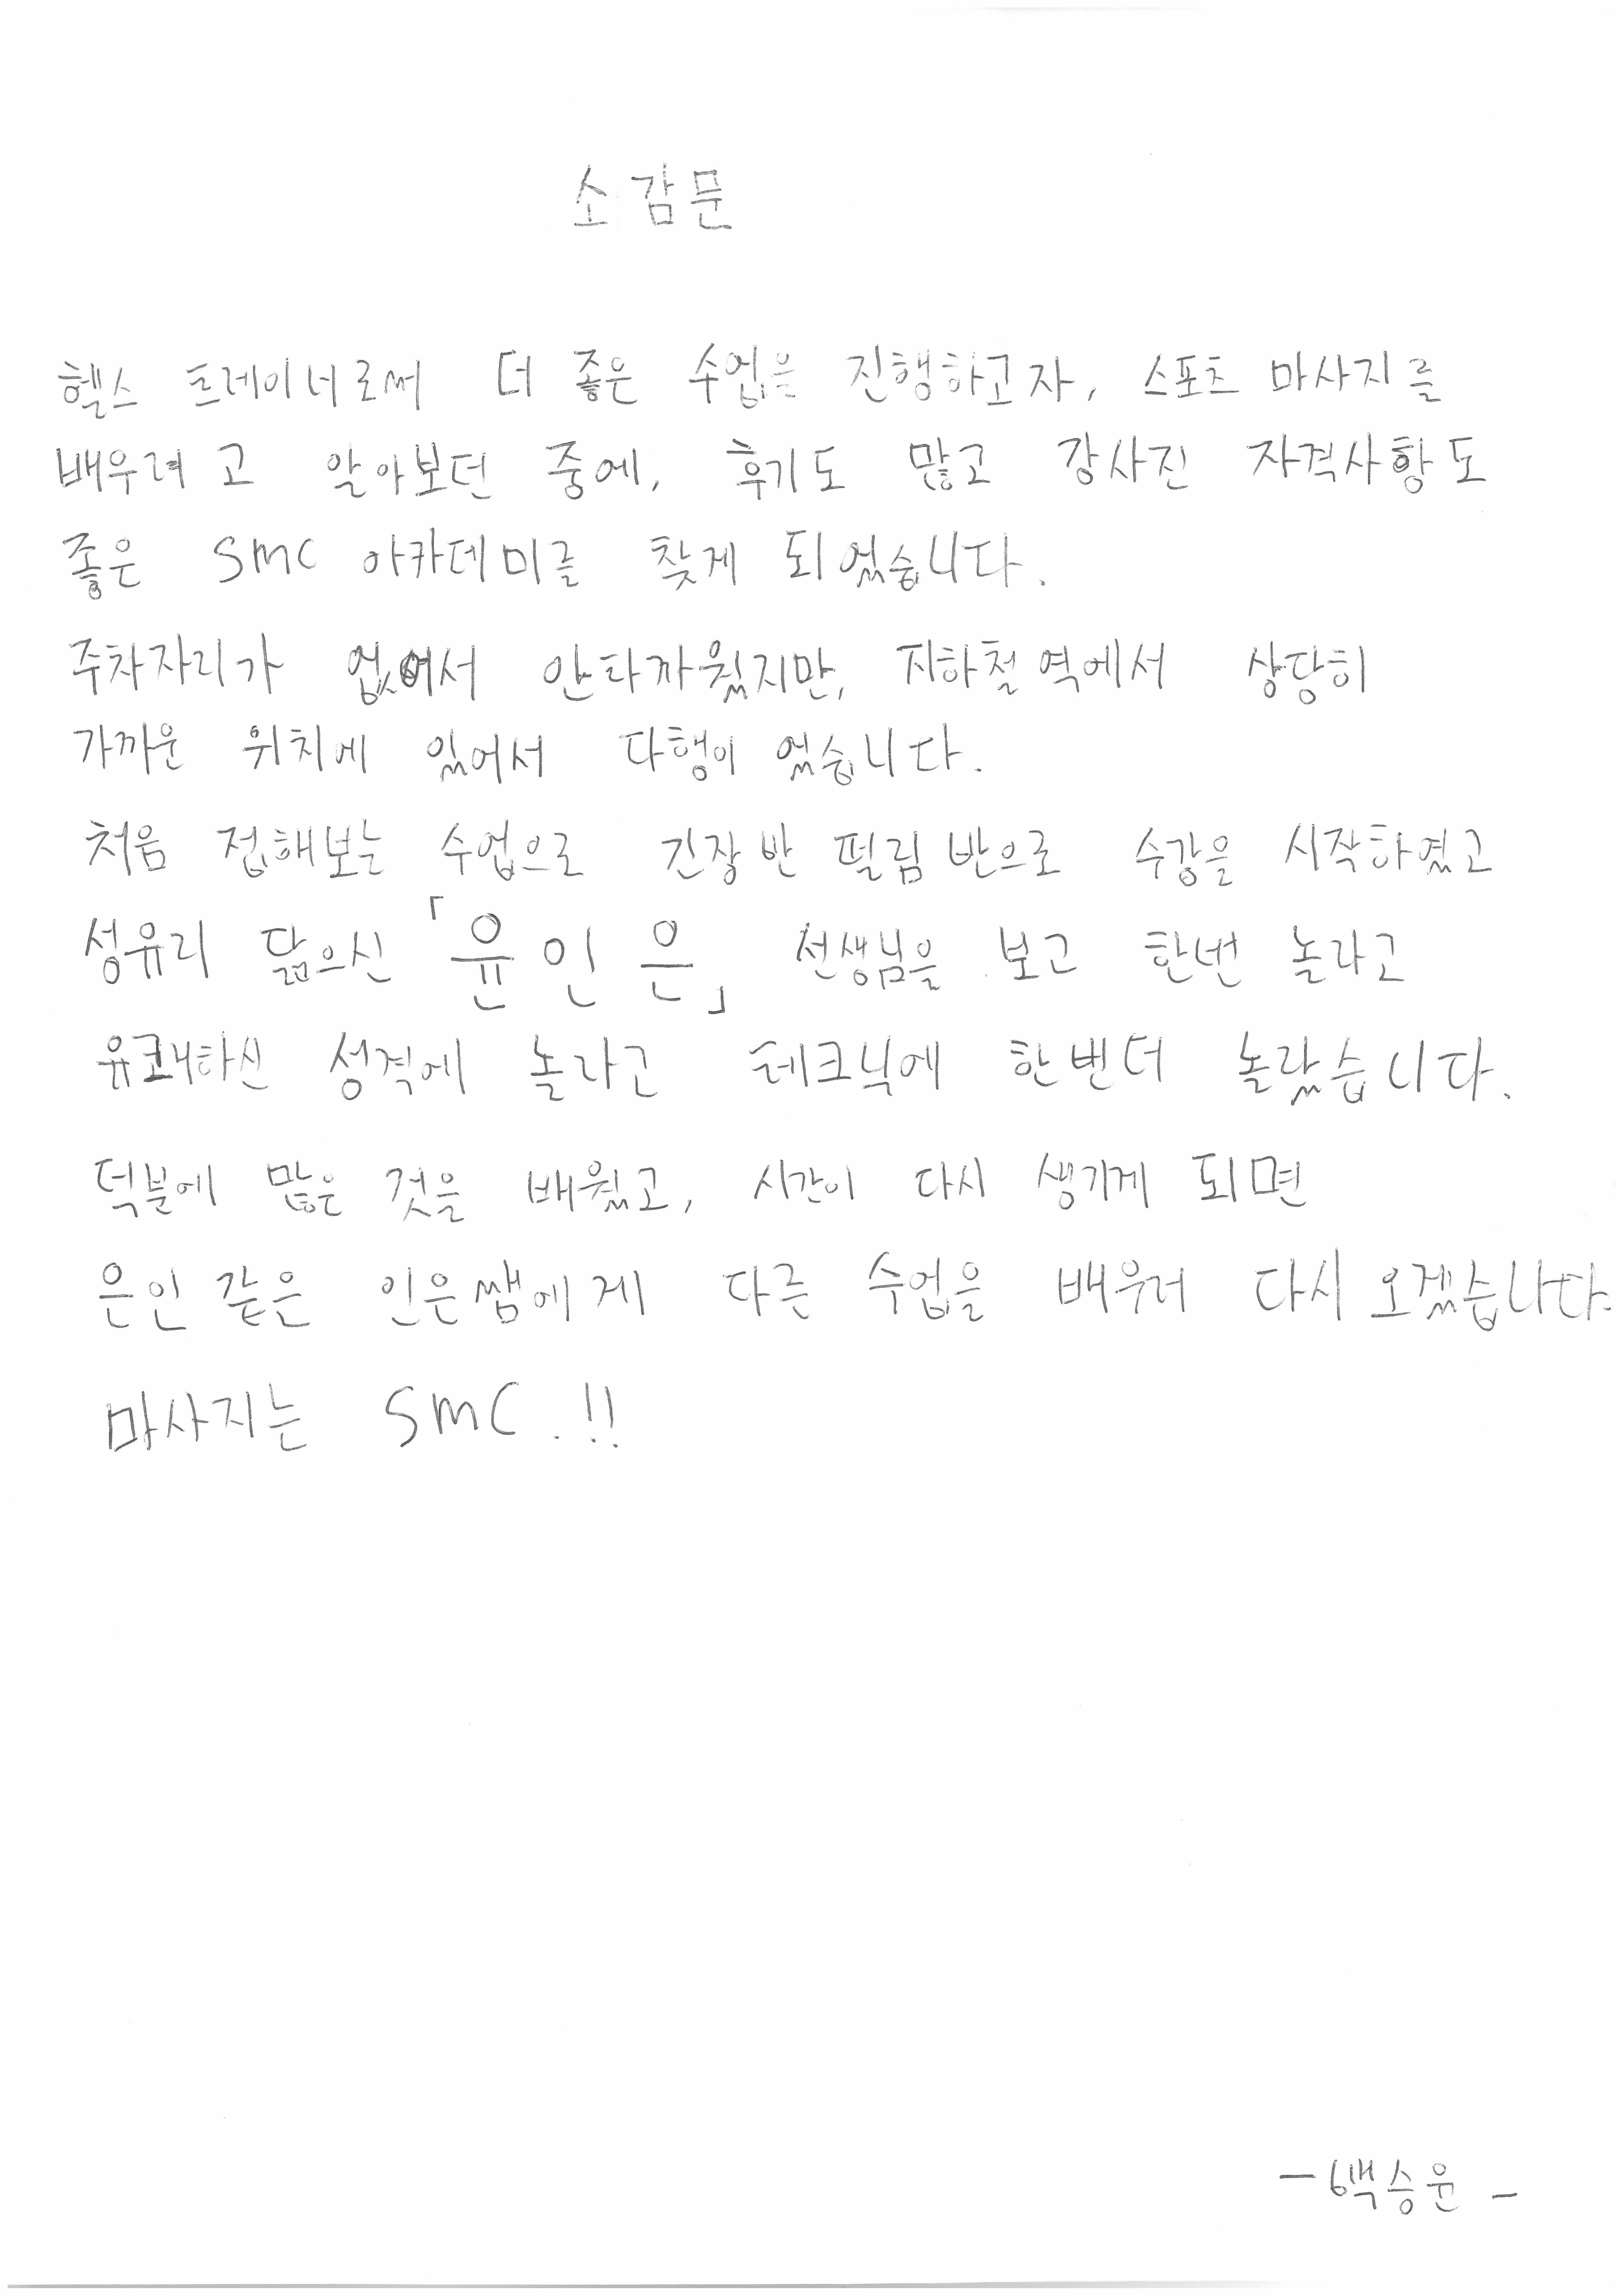 소감문
헬스 트레이너로써 더 좋은 수업을 진행하고자, 스포츠 마사지를
배우려고 알아보던 중에, 후기도 많고 강사진 자격사항도
좋은 SMC 아카데미를 찾게 되었습니다.
주차자리가 없어서 안타까웠지만, 지하철역에서 상당히
가까운 위치에 있어서 다행이었습니다.
처음 접해보는 수업으로 긴장반 떨림반으로 수강을 시작하였고
성유리 닮으신 「윤인은」 선생님을 보고 한번 놀라고
유쾌하신 성격에 놀라고 테크닉에 한번더 놀랐습니다.
덕분에 많은 것을 배웠고, 시간이 다시 생기게 되면
은인 같은 인은쌤에게 다른 수업을 배우러 다시 오겠습니다.
마사지는 SMC.!!
- 백승윤 -